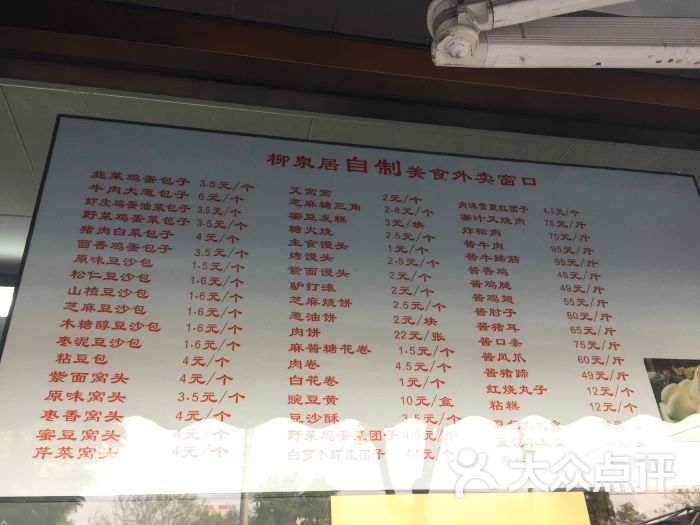 柳泉居自制美食外卖窗口
韭菜鸡蛋包子 3.5元/个
牛肉大葱包子 6元/个
虾皮鸡蛋油菜包子 3.5元/个
野菜鸡蛋菜包子 3.5元/个
猪肉白菜包子 4元/个
茴香鸡蛋包子 3.5元/个
原味豆沙包 1.5元/个
松仁豆沙包 1.6元/个
山楂豆沙包 1.6元/个
芝麻豆沙包 1.6元/个
木糖醇豆沙包 1.6元/个
枣泥豆沙包 1.6元/个
粘豆包 4元/个
紫面窝头 4元/个
原味窝头 3.5元/个
枣香窝头 4元/个
蜜豆窝头 4元/个
芹菜窝头 4元/个
艾窝窝 2元/个
芝麻糖三角 2.8元/个
蜜豆发糕 3元/块
糖火烧 2.5元/个
主食馒头 1元/个
烤馒头 2.5元/个
紫面馒头 2元/个
驴打滚 2元/个
芝麻烧饼 2.5元/个
葱油饼 2元/块
肉饼 22元/张
麻酱糖花卷 1.5元/个
肉卷 4.5元/个
白花卷 1元/个
豌豆黄 10元/盒
豆沙酥 3.5元/个
野菜鸡蛋菜团子 4.5元/个
白萝卜虾皮团子 4.5元/个
肉沫雪里红团子 4.5元/个
蜜汁叉烧肉 75元/斤
炸松肉 70元/斤
酱牛肉 95元/斤
酱牛蹄筋 95元/斤
酱香鸡 48元/斤
酱鸡腿 49元/斤
酱鸡翅 55元/斤
酱肘子 80元/斤
酱猪耳 65元/斤
酱口条 75元/斤
酱凤爪 60元/斤
酱猪蹄 49元/斤
红烧丸子 12元/个
粘糕 12元/个
大众点评